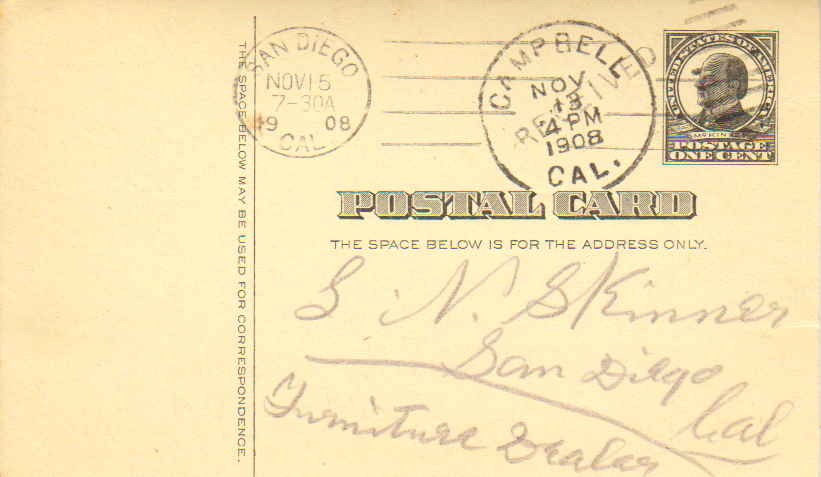 SAN DIEGO
NOV 15
7-30A
19 08
CAL
CAMPBELL
NOV
4 PM
1908
CAL.
RECEIVED
UNITED STATES OF AMERICA
McKINLEY
POSTAGE
ONE CENT
THE SPACE BELOW MAY BE USED FOR CORRESPONDENCE.
POSTAL CARD
THE SPACE BELOW IS FOR THE ADDRESS ONLY.
S N. Skinner
San Diego
Cal
Furniture Dealer